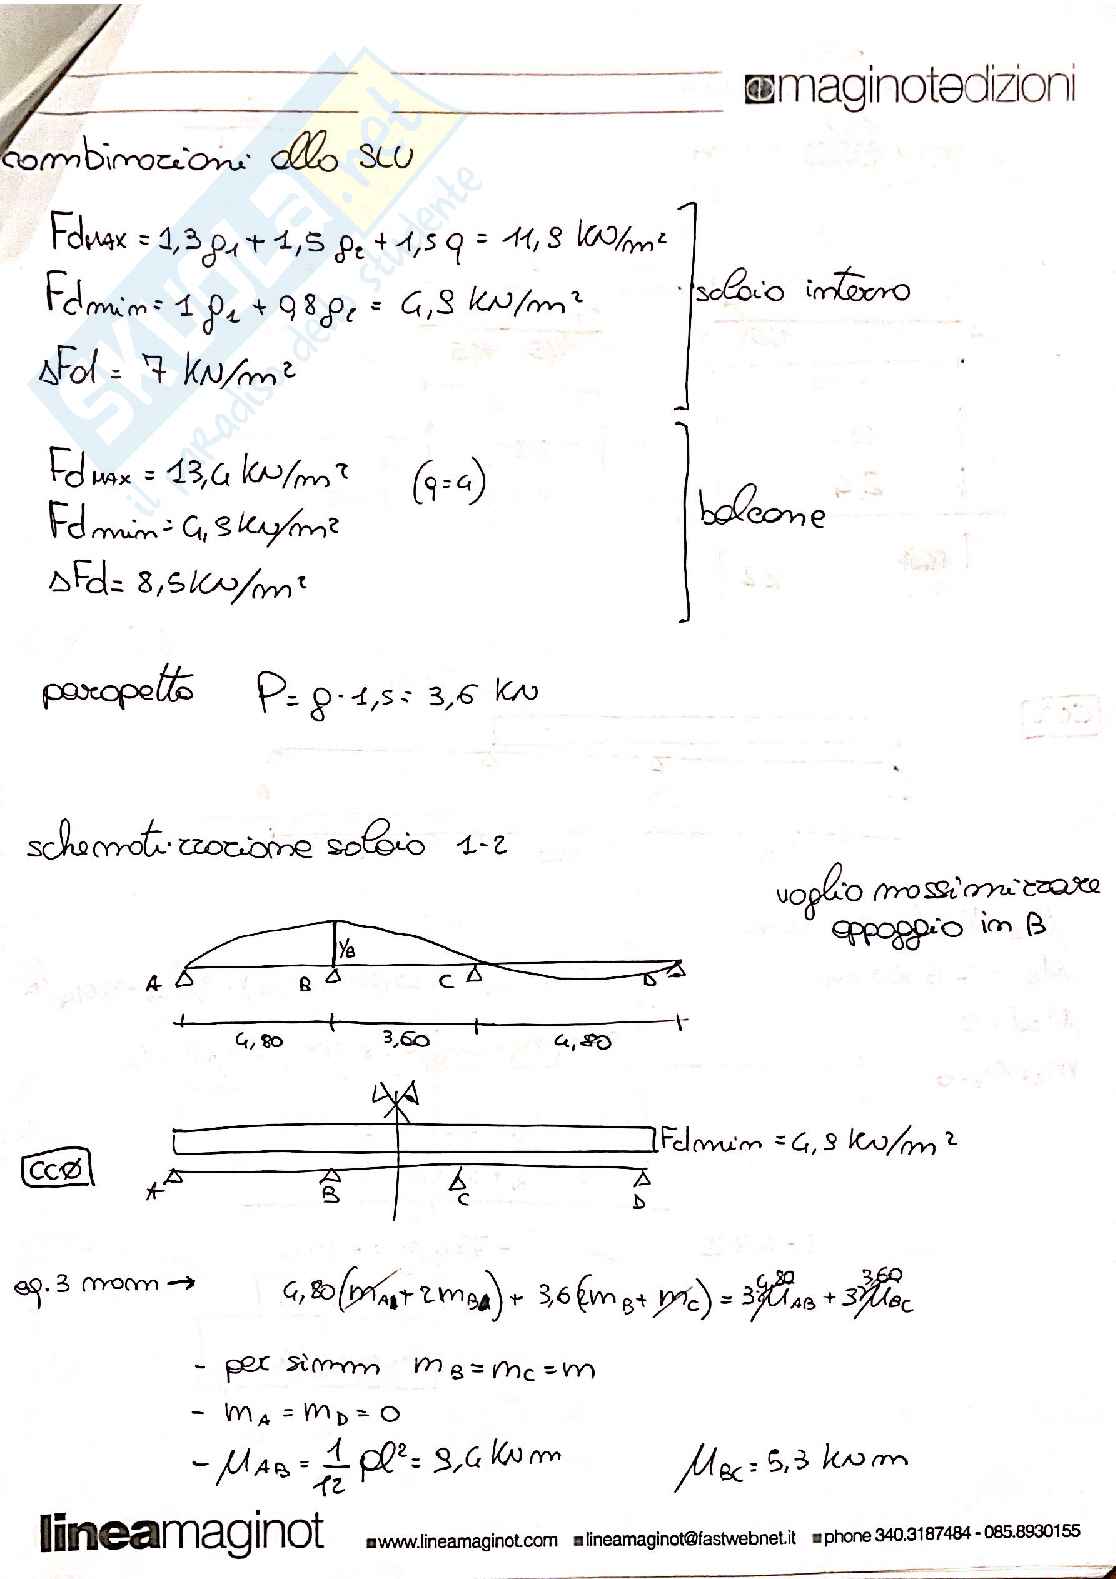 maginotedizioni
SKUOLA.net
il paradiso dello studente
combinazioni allo SLU
FdMAX = 1,3 g1 + 1,5 g2 + 1,5 q = 11,9 KN/m²
Fdmin = 1 g1 + 0,8 g2 = 4,9 KN/m²
solaio interno
ΔFd = 7 KN/m²
FdMAX = 13,4 KN/m² (q=4)
Fdmin = 4,9 KN/m²
balcone
ΔFd = 8,5 KN/m²
parapetto P = g · 1,5 = 3,6 KN
schematizzazione solaio 1-2
voglio massimizzare
appoggio in B
A B YB C D
4,80 3,60 4,80
CCØ
Fdmin = 4,9 KN/m²
A B C D
eq. 3 mom → 4,80 (mA + 2mB) + 3,6 (2mB + mC) = 3 4,80 μAB + 3 3,60 μBC
- per simm mB = mC = m
- mA = mD = 0
- μAB = 1/12 pl² = 9,4 KN m μBC = 5,3 KN m
lineamaginot
www.lineamaginot.com lineamaginot@fastwebnet.it phone 340.3187484 - 085.8930155